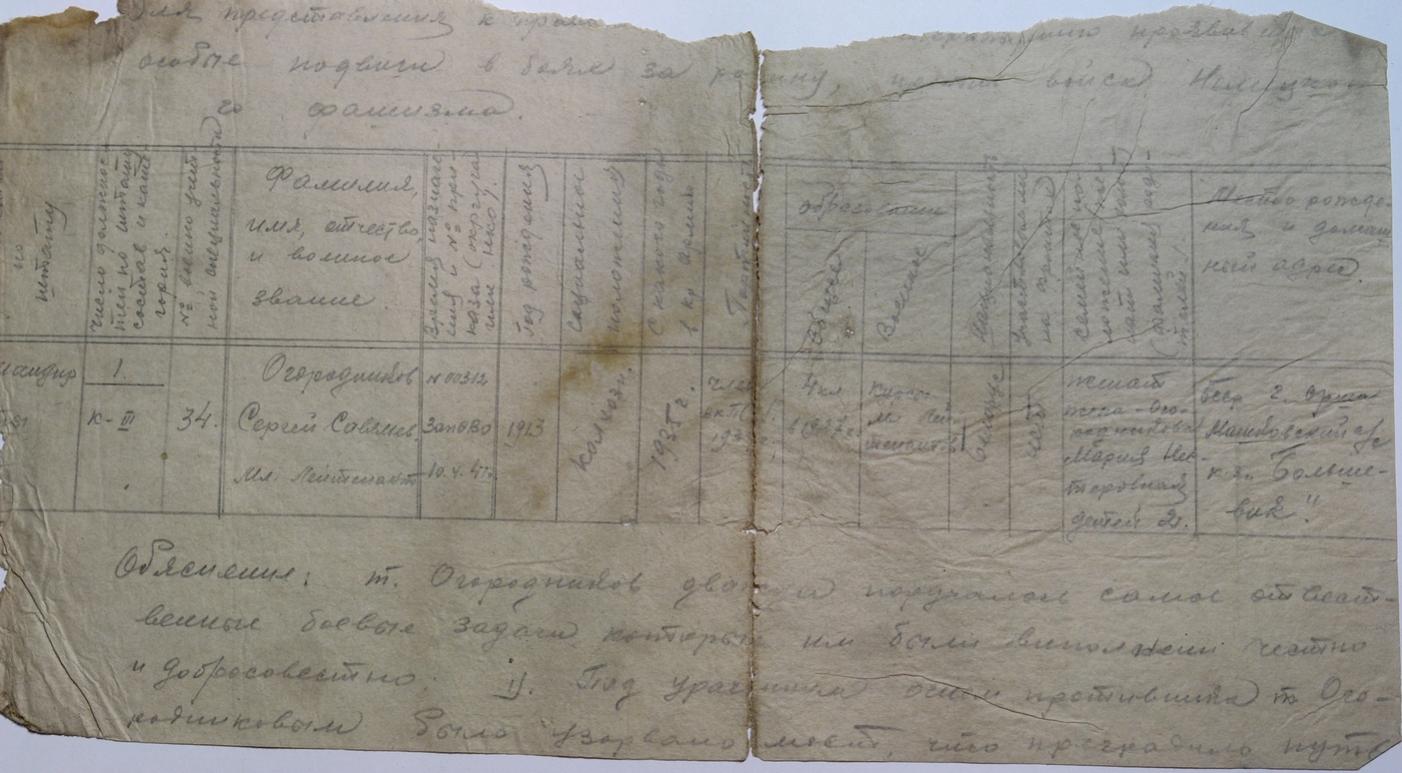 Для представления к
особые подвиги в боях за родину, против войск Немецко
го фашизма.
по штату
число должнос-
тей по штату
состав и кате-
гория.
№ военно учет
ной специальности
Фамилия,
имя, отчество
и военное
звание
Время назначе-
ния и № при-
каза (округа
или нко).
Год рождения
социальное
положение
С какого года
в кр армии
образование
Общее
Военное
Национальность
на фронте
семейное по-
ложение
Место рожде-
ния и домаш
ный адрес
1.
к-III
34.
Огородников
Сергей Савельев.
Мл. Лейтенант
№ 00312
ЗапОВО
10.4.41г.
1913
Колхозн.
1935 г.
4 кл
Курсы
мл лей
тенантов
белорус
нет
женат
жена-Ого-
родникова
Мария Нес-
теровная
детей 2.
бсср г. Орша
Машковский с/с
к-з. "Больше-
вик"
Обяснение: т. Огородников дважда поручалось самое ответст-
венные боевые задачи которые им были выполнени честно
и добросовестно. 1). Под ураганым огнем противника т Ого-
родниковым было узорвано мост, что преградило путь